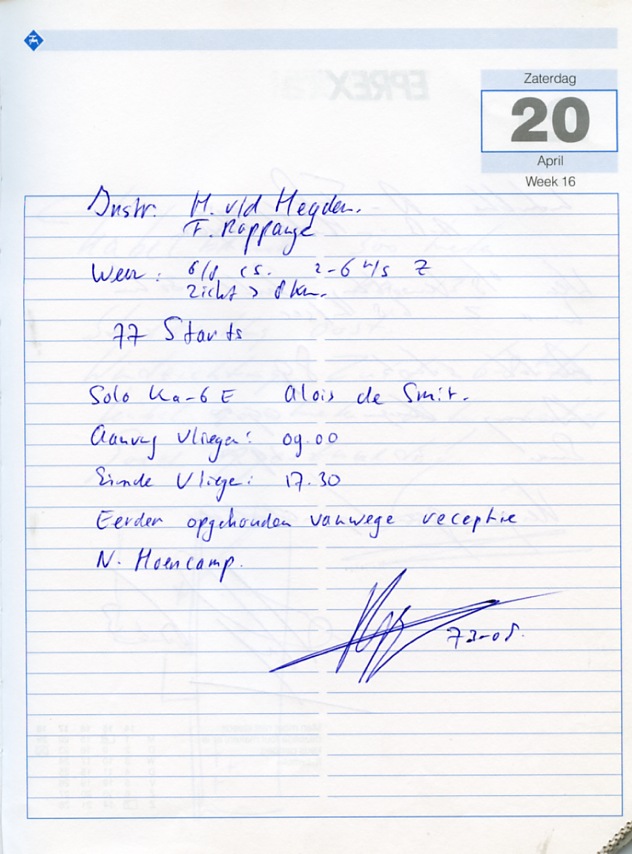 Zaterdag
20
April
Week 16
Instr. H. v/d Heyden.
F. Rappange
Weer: 6/8 cs. 2-6 m/s Z
zicht > 8 km.
77 Starts
Solo Ka-6 E Alois de Smit.
Aanvang vliegen: 09.00
Einde Vliegen: 17.30
Eerder opgehouden vanwege receptie
N. Hoencamp.
73-08.